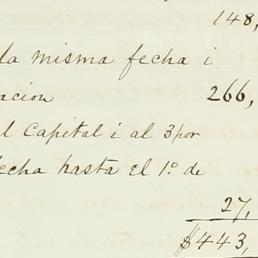 148,
la misma fecha i
acion 266,
l Capital i al 3 por
fecha hasta el 1º de
27,
$443,